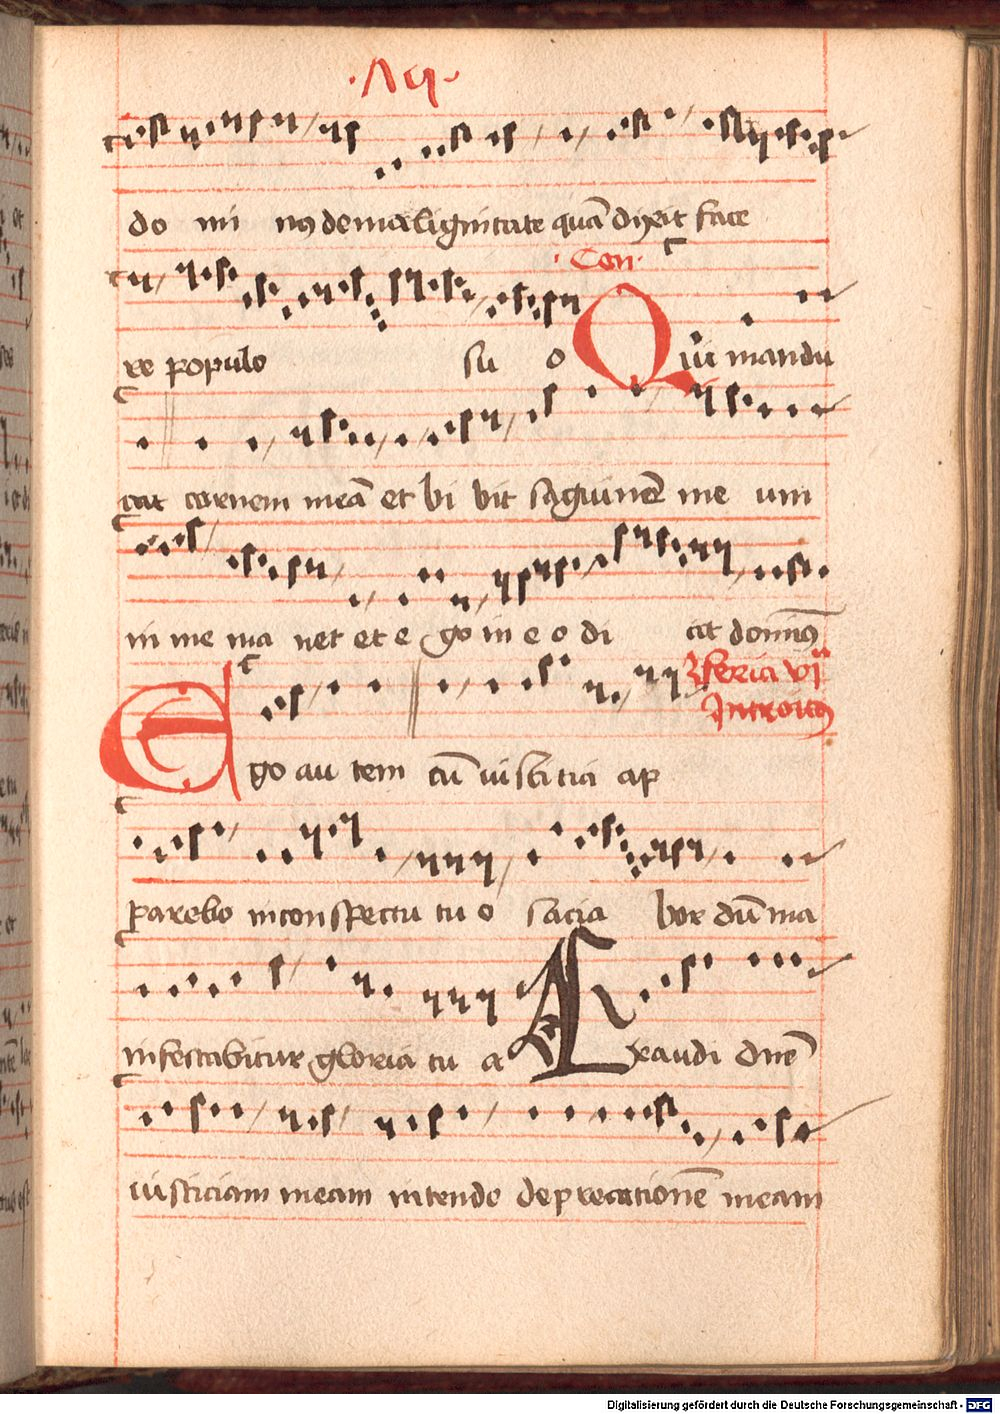 do mi nus de malignitate quā dixit face
· Con ·
re populo su o Qui mandu
cat carnem meā et bi bit sāguinē me um
in me ma net et e go in e o di cit dominus
feria vj
Introitus
Ego au tem cū iusticia ap
parebo in conspectu tu o sacia bor dum ma
infestabitur gloria tu a Exaudi dne
iusticiam meam intende deprecationē meam
Digitalisierung gefördert durch die Deutsche Forschungsgemeinschaft - DFG